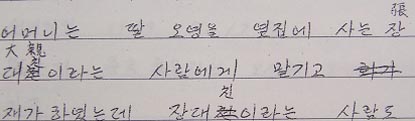 어머니는 딸 오영을 옆집에 사는 장張
대大친親이라는 사람에게 맡기고
재가 하였는데 장대친이라는 사람도